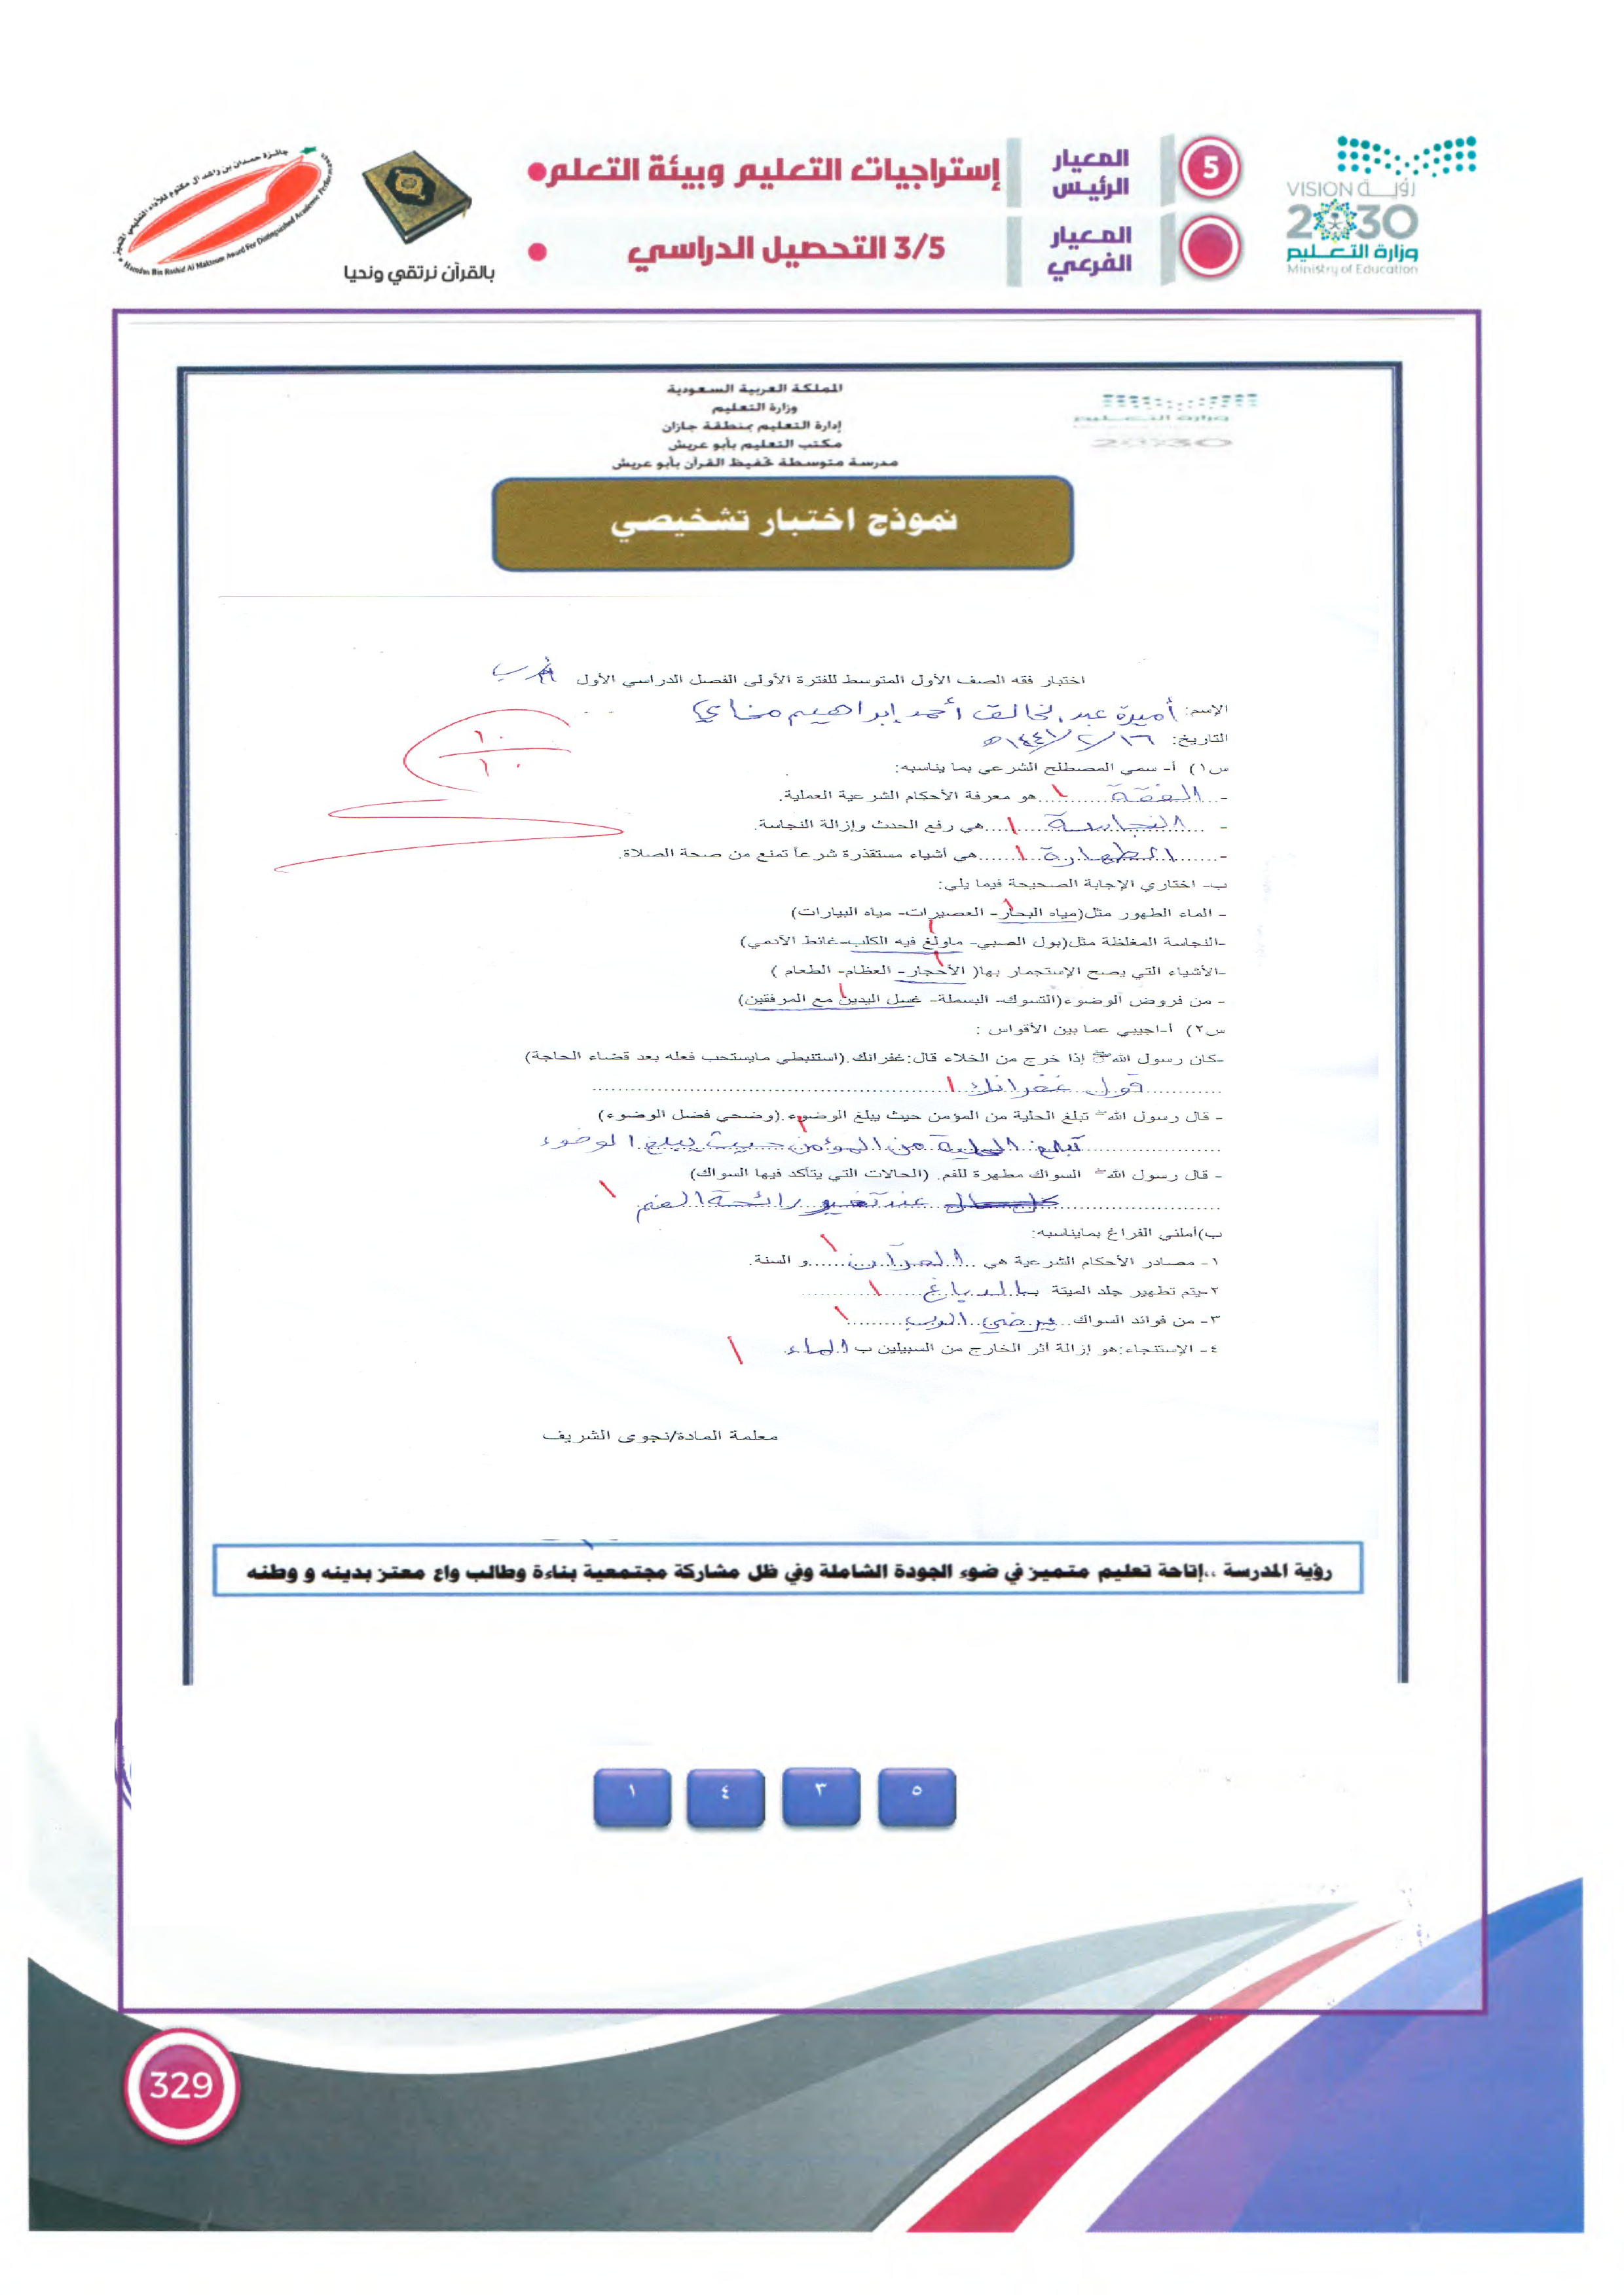 جائزة حمدان بن راشد آل مكتوم للأداء التعليمي المتميز
Hamdan Bin Rashid Al Maktoum Award For Distinguished Academic Performance
بالقرآن نرتقي ونحيا
5
المعيار الرئيس
إستراجيات التعليم وبيئة التعلم
المعيار الفرعي
3/5 التحصيل الدراسي
VISION رؤية
2030
وزارة التعليم
Ministry of Education
المملكة العربية السعودية
وزارة التعليم
إدارة التعليم بمنطقة جازان
مكتب التعليم بأبو عريش
مدرسة متوسطة تحفيظ القرآن بأبو عريش
وزارة التعليم
2030
نموذج اختبار تشخيصي
اختبار فقه الصف الأول المتوسط للفترة الأولى الفصل الدراسي الأول
الإسم: أميرة عبدالخالق أحمد إبراهيم
التاريخ: ١٦/٢/١٤٤١هـ
١٠
١٠
س١) أ- سمي المصطلح الشرعي بما يناسبه:
- الفقة هو معرفة الأحكام الشرعية العملية.
- النجاسة هي رفع الحدث وإزالة النجاسة.
- الطهارة هي أشياء مستقذرة شرعاً تمنع من صحة الصلاة.
ب- اختاري الإجابة الصحيحة فيما يلي:
- الماء الطهور مثل(مياه البحار- العصيرات- مياه البيارات)
-النجاسة المغلظة مثل(بول الصبي- ماولغ فيه الكلب-غائط الأدمي)
-الأشياء التي يصح الإستجمار بها( الأحجار- العظام- الطعام )
- من فروض الوضوء(التسوك- البسملة- غسل اليدين مع المرفقين)
س٢) أ-اجيبي عما بين الأقواس :
-كان رسول الله ﷺ إذا خرج من الخلاء قال:غفرانك.(استنبطي مايستحب فعله بعد قضاء الحاجة)
قول غفرانك
- قال رسول الله ﷺ تبلغ الحلية من المؤمن حيث يبلغ الوضوء.(وضحي فضل الوضوء)
تبلغ الحلية من المؤمن حيث يبلغ الوضوء
- قال رسول الله ﷺ السواك مطهرة للفم. (الحالات التي يتأكد فيها السواك)
عند تغير رائحة الفم
ب)أملئي الفراغ بمايناسبه:
١- مصادر الأحكام الشرعية هي القرآن و السنة.
٢-يتم تطهير جلد الميتة بالدباغ
٣- من فوائد السواك يرضي الرب
٤- الإستنجاء:هو إزالة أثر الخارج من السبيلين ب الماء
معلمة المادة/نجوى الشريف
رؤية المدرسة ..إتاحة تعليم متميز في ضوء الجودة الشاملة وفي ظل مشاركة مجتمعية بناءة وطالب واع معتز بدينه و وطنه
٥ ٣ ٤ ١
329